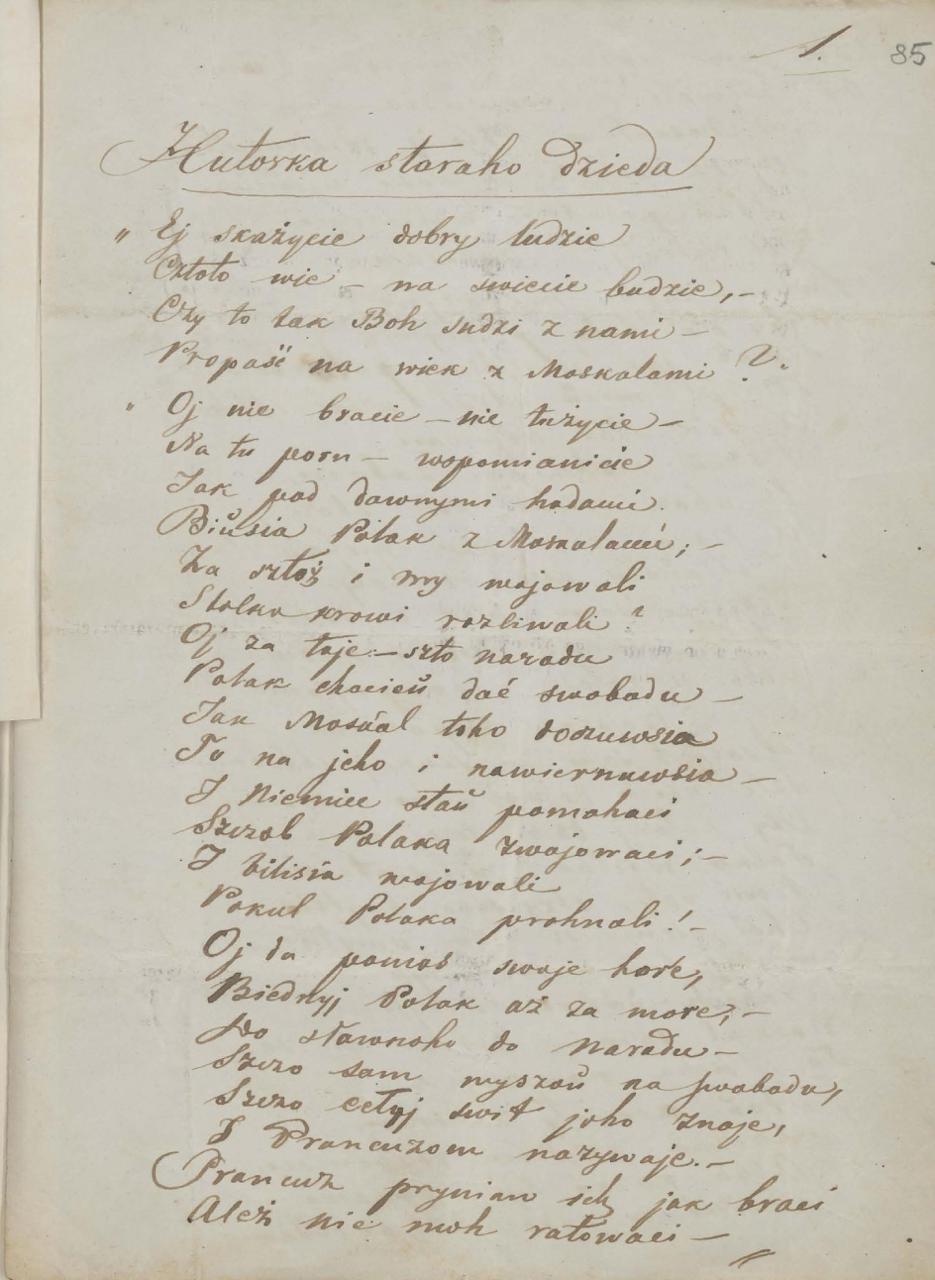 1. 85
Hutorka staraho dzieda
„ Ej skażycie dobry ludzie
Cztoto wie – na swiecie budzie, –
Czy to tak Boh sudzi z nami –
Propaść na wiek z Moskalami ?"
„ Oj nie bracie – nie tużycie –
Na tu poru – wspomianicie
Jak pad dawnymi hadami.
Biŭsia Polak z Moskalami; –
Za sztoż i my wajowali
Stolko krowi razliwali ?
Oj za toje – szto naradu
Polak chacieŭ dać swabadu –
Jak Moskal toho doczuwsia
To na jeho i nawiernuwsia –
I Niemiec staŭ pamahaci
Szczob Polaka zwajowaci; –
I bilisia wajowali
Pokul Polaka prohnali ! –
Oj da panios swoje hore,
Biednyj Polak aż za more; –
Do sławnoho do naradu –
Szczo sam wyszoŭ na swabadu,
Szczo cełyj swit joho znaje,
I Francuzom nazywaje. –
Francuz pryniaw ich jak braci
Ależ nie moh ratowaci –